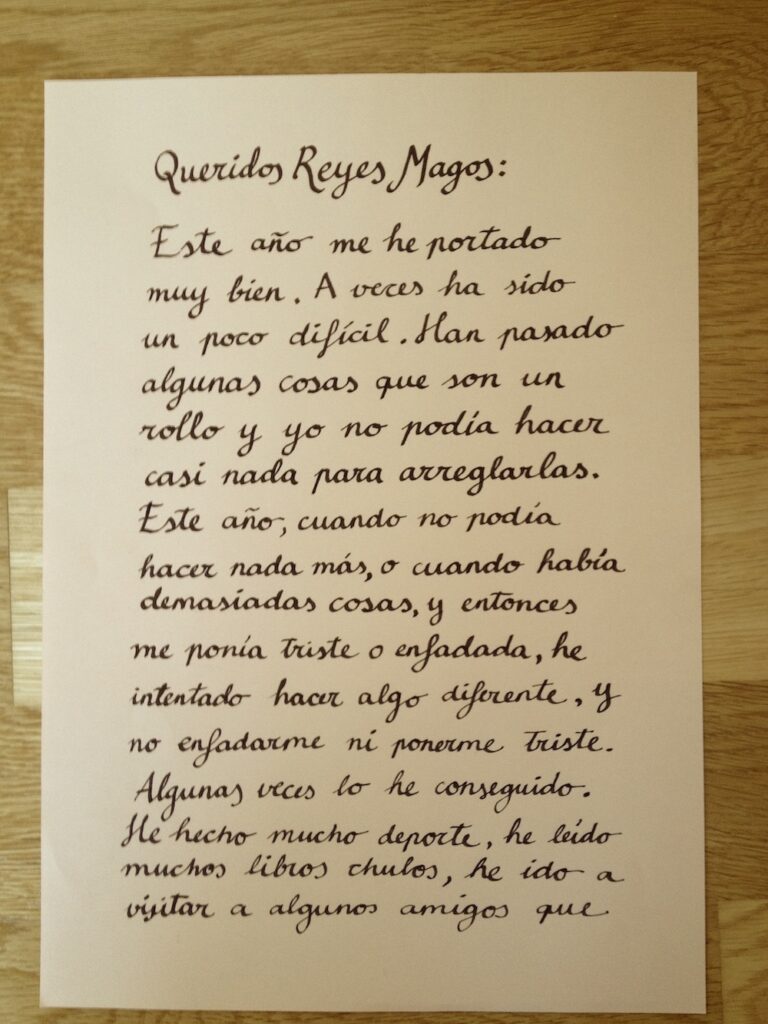 Queridos Reyes Magos:
Este año me he portado
muy bien. A veces ha sido
un poco difícil. Han pasado
algunas cosas que son un
rollo y yo no podía hacer
casi nada para arreglarlas.
Este año, cuando no podía
hacer nada más, o cuando había
demasiadas cosas, y entonces
me ponía triste o enfadada, he
intentado hacer algo diferente, y
no enfadarme ni ponerme triste.
Algunas veces lo he conseguido.
He hecho mucho deporte, he leído
muchos libros chulos, he ido a
visitar a algunos amigos que